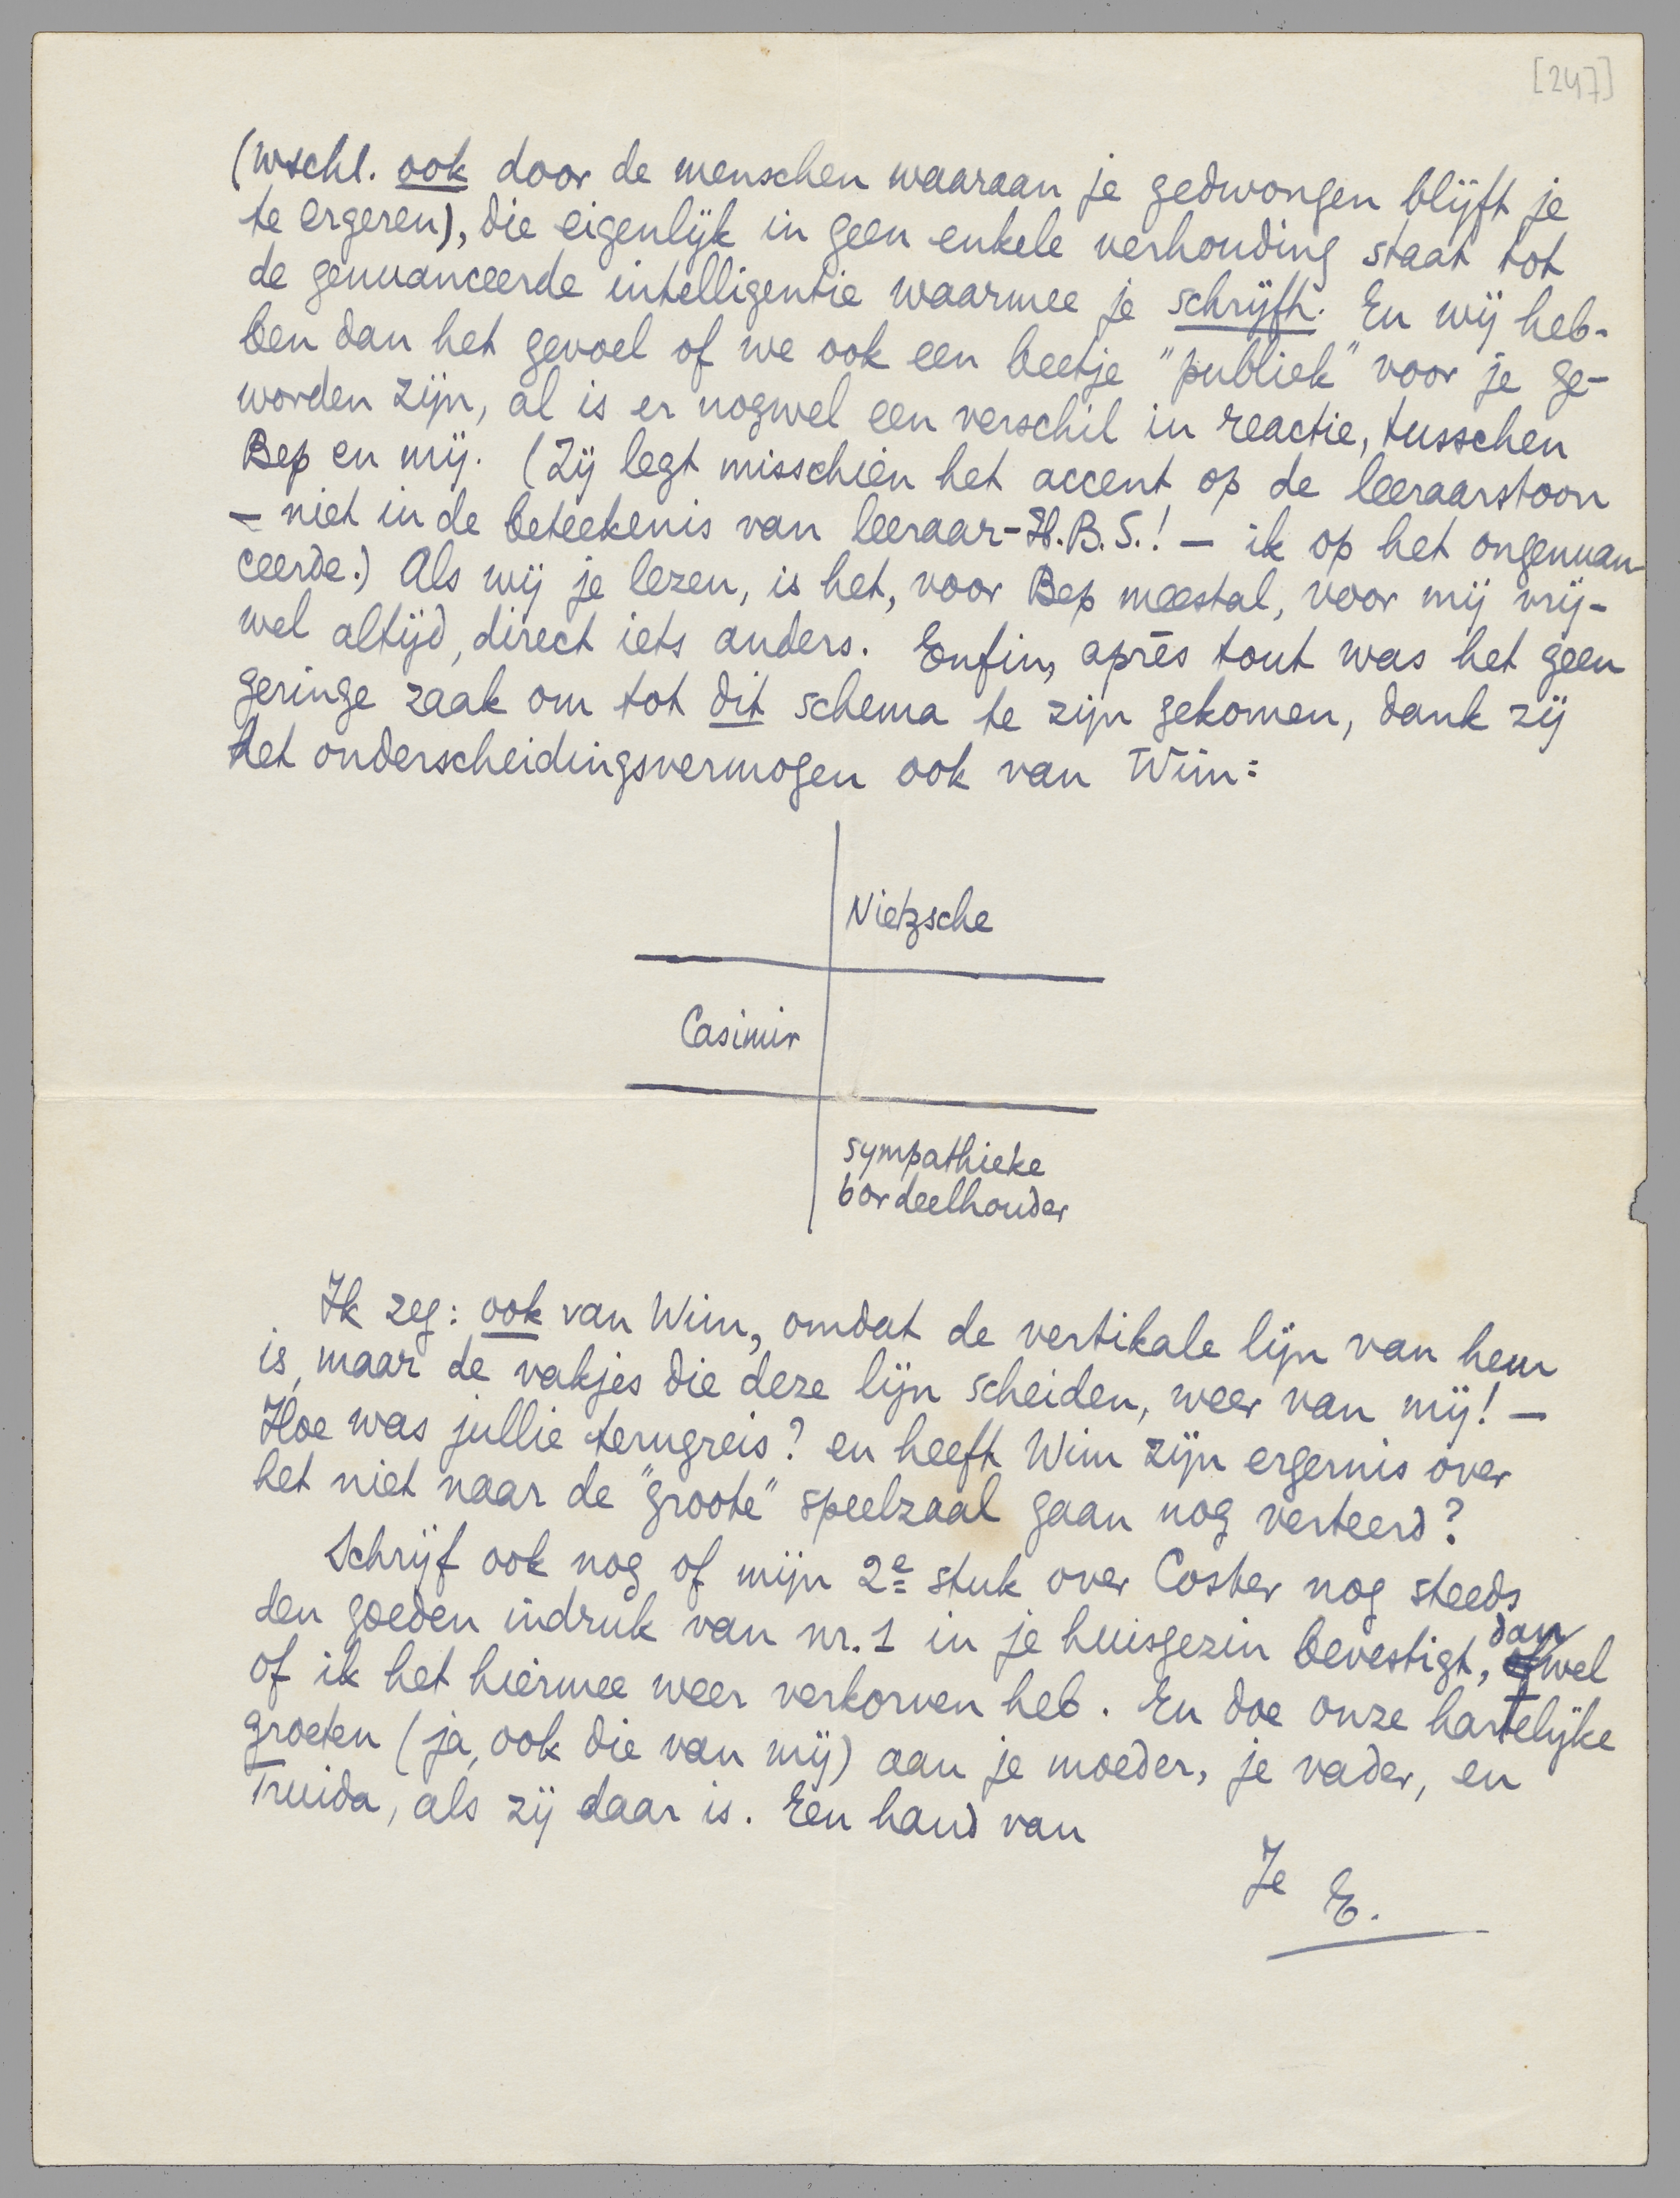 [247]
(wschl. ook door de menschen waaraan je gedwongen blijft je
te ergeren), die eigenlijk in geen enkele verhouding staat tot
de genuanceerde intelligentie waarmee je schrijft. En wij heb-
ben dan het gevoel of we ook een beetje "publiek" voor je ge-
worden zijn, al is er nogwel een verschil in reactie, tusschen
Bep en mij. (Zij legt misschien het accent op de leeraarstoon
— niet in de beteekenis van leeraar-H.B.S.! — ik op het ongenuan-
ceerde.) Als wij je lezen, is het, voor Bep meestal, voor mij vrij-
wel altijd, direct iets anders. Enfin, après tout was het geen
geringe zaak om tot dit schema te zijn gekomen, dank zij
het onderscheidingsvermogen ook van Wim:
Nietzsche
Casimir
sympathieke
bordeelhouder
Ik zeg: ook van Wim, omdat de vertikale lijn van hem
is, maar de vakjes die deze lijn scheiden, weer van mij! —
Hoe was jullie terugreis? en heeft Wim zijn ergernis over
het niet naar de "groote" speelzaal gaan nog verteerd?
Schrijf ook nog of mijn 2e stuk over Coster nog steeds
den goeden indruk van nr. 1 in je huisgezin bevestigt, dan wel
of ik het hiermee weer verkorven heb. En doe onze hartelijke
groeten (ja, ook die van mij) aan je moeder, je vader, en
Truida, als zij daar is. Een hand van
Je E.